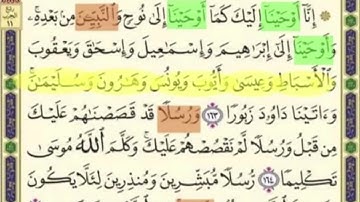 إِنَّا أَوْحَيْنَا إِلَيْكَ كَمَا أَوْحَيْنَا إِلَىٰ نُوحٍ وَالنَّبِيِّينَ مِن بَعْدِهِ ۚ
وَأَوْحَيْنَا إِلَىٰ إِبْرَاهِيمَ وَإِسْمَاعِيلَ وَإِسْحَاقَ وَيَعْقُوبَ
وَالْأَسْبَاطِ وَعِيسَىٰ وَأَيُّوبَ وَيُونُسَ وَهَارُونَ وَسُلَيْمَانَ ۚ
وَآتَيْنَا دَاوُودَ زَبُورًا ١٦٣ وَرُسُلًا قَدْ قَصَصْنَاهُمْ عَلَيْكَ
مِن قَبْلُ وَرُسُلًا لَّمْ نَقْصُصْهُمْ عَلَيْكَ ۚ وَكَلَّمَ اللَّهُ مُوسَىٰ
تَكْلِيمًا ١٦٤ رُّسُلًا مُّبَشِّرِينَ وَمُنذِرِينَ لِئَلَّا يَكُونَ